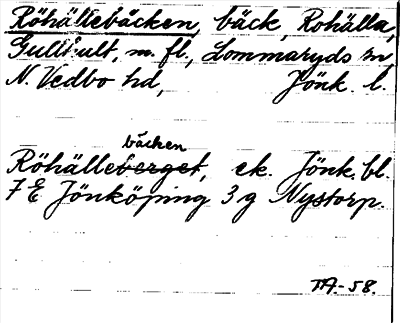 Röhällebäcken, bäck, Rohälla,
Gullhult, m. fl., Lommaryds sn,
N. Vedbo hd, Jönk. l.
bäcken
Röhälleberget, ek. Jönk. bl.
7 E Jönköping 3 g Nystorp.
TA-58.